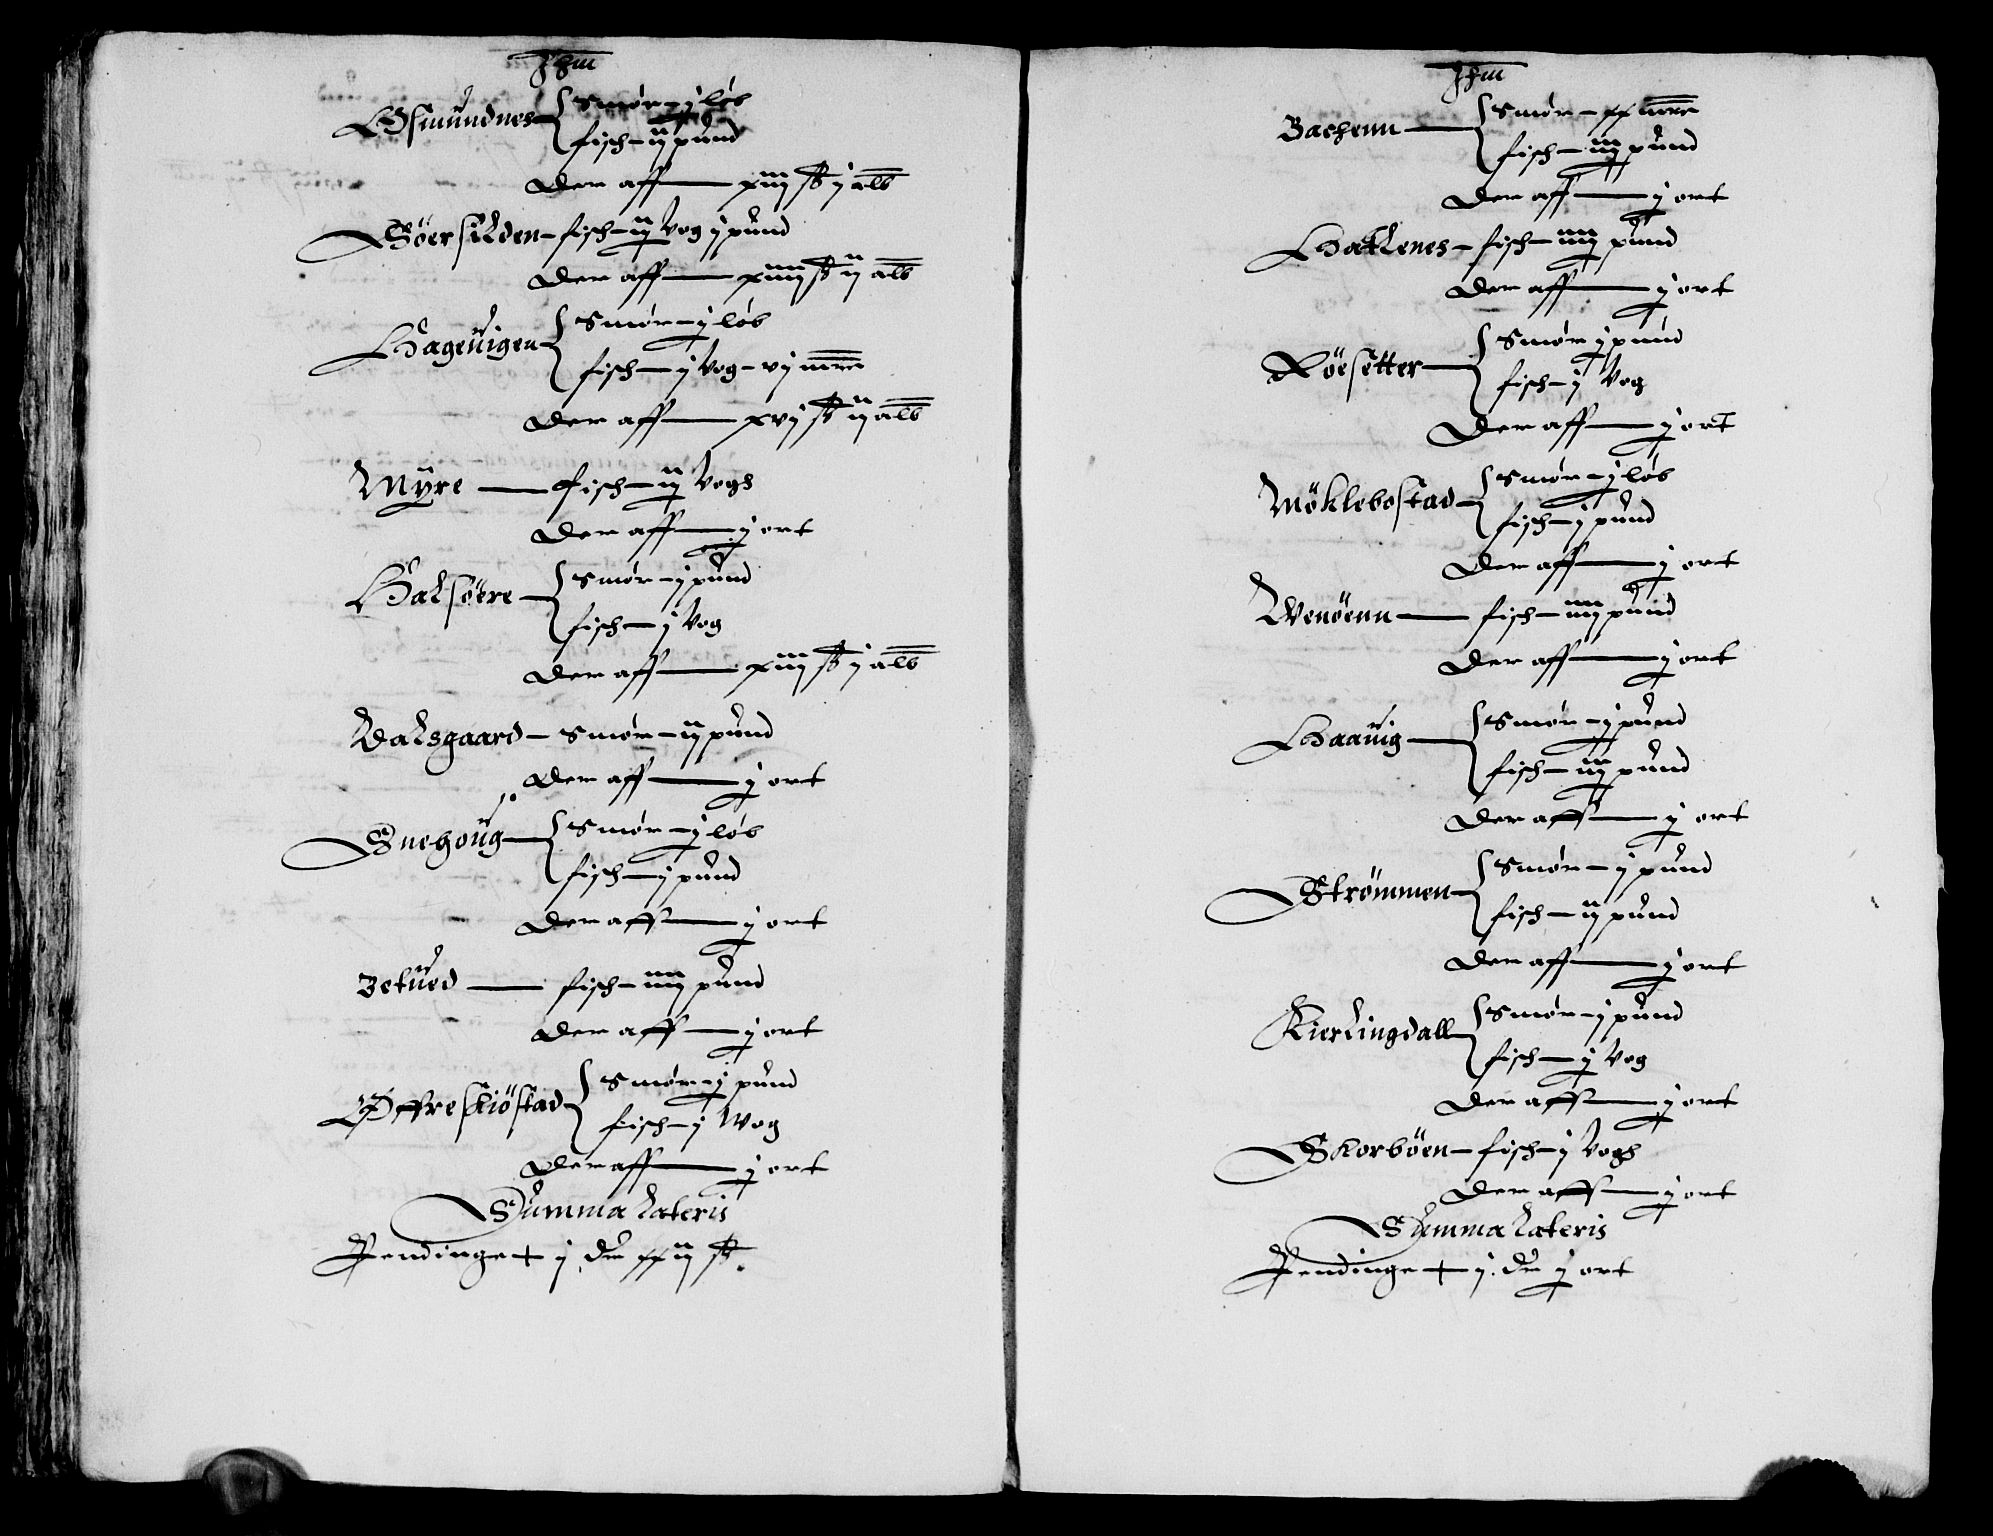 Jhm
Osmundnes { Smør - j løb
fisch - iij pund
Der aff — xiiij ß j alb
Söersilden - fisch - iij Vog j pund
Der aff — xiiij ß ij alb
Hageuigen { Smør - j løb
fisch - j Vog - vj mrc
Der aff — xvj ß ij alb
Myre — fisch - iij Vogh
Der aff — j ort
Halsöere { Smør - j pund
fisch - j Vog
Der aff — xiiij ß j alb
Walsgaard - Smør - ij pund
Der aff — j ort
Snehoug { Smør - j løb
fisch - j pund
Der aff — j ort
Betued — fisch - iiij pund
Der aff — j ort
Offreskiöstad { Smør - j pund
fisch - j Wog
Der aff — j ort
Summa Lateris
Pendinge + j Dr xxij ß.
Jhm
Bachenn { Smør - xx mrc
fisch - iiij pund
Der aff — j ort
Haklenes - fisch - iiij pund
Der aff — j ort
Röesetter { Smør j pund
fisch - j Vog
Der aff — j ort
Möklebostad { Smør - j løb
fisch - j pund
Der aff — j ort
Wenöenn — fisch - iiij pund
Der aff — j ort
Haauig { Smør - j pund
fisch - iiij pund
Der aff — j ort
Strømmen { Smør - j pund
fisch - ij pund
Der aff — j ort
Kierlingdall { Smør - j pund
fisch - j Vog
Der aff — j ort
Skorböen - fisch - j Vogh
Der aff — j ort
Summa Lateris
Pendinge + j. Dr j ort